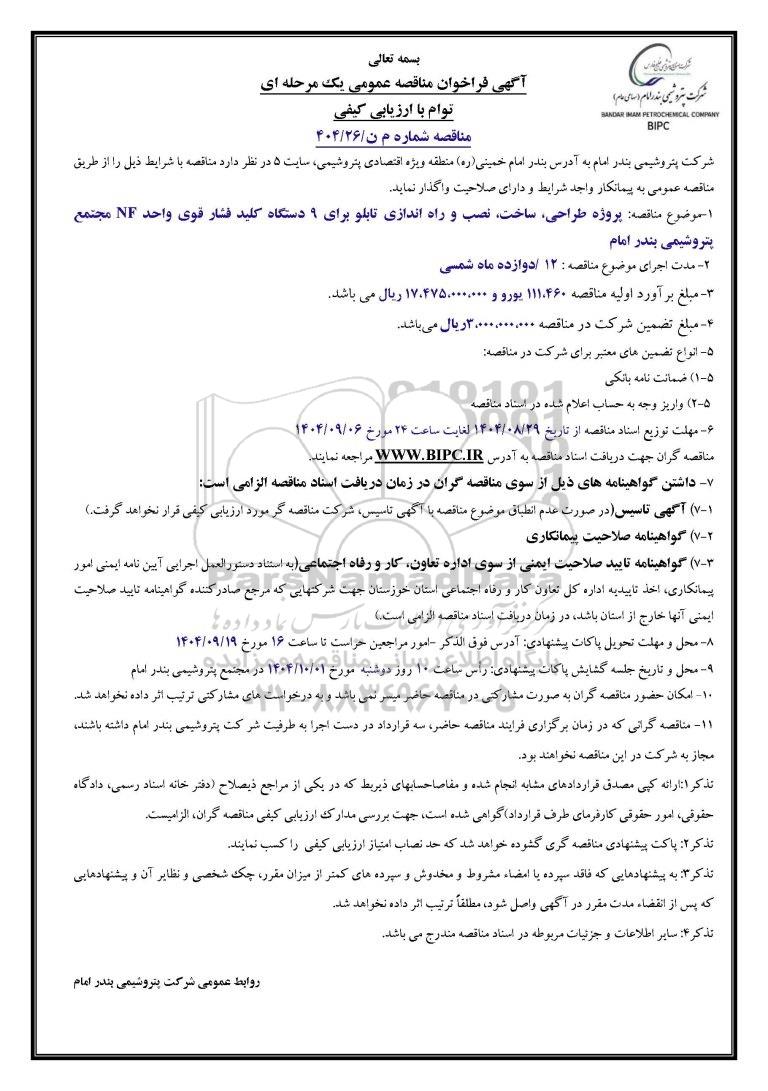 بسمه تعالی
آگهی فراخوان مناقصه عمومی یک مرحله ای
توام با ارزیابی کیفی
مناقصه شماره م ن/۴۰۴/۲۶
شرکت پتروشیمی بندر امام (سهامی عام)
BANDAR IMAM PETROCHEMICAL COMPANY
BIPC
شرکت پتروشیمی بندر امام به آدرس بندر امام خمینی(ره) منطقه ویژه اقتصادی پتروشیمی، سایت ۵ در نظر دارد مناقصه با شرایط ذیل را از طریق
مناقصه عمومی به پیمانکار واجد شرایط و دارای صلاحیت واگذار نماید.
۱-موضوع مناقصه: پروژه طراحی، ساخت، نصب و راه اندازی تابلو برای ۹ دستگاه کلید فشار قوی واحد NF مجتمع
پتروشیمی بندر امام
۲- مدت اجرای موضوع مناقصه : ۱۲ /دوازده ماه شمسی
۳-مبلغ بر آورد اولیه مناقصه ۱۱۱،۴۶۰ یورو و ۱۷،۴۷۵،۰۰۰،۰۰۰ ریال می باشد.
۴-مبلغ تضمین شرکت در مناقصه ۳،۰۰۰،۰۰۰،۰۰۰ریال می‌باشد.
۵- انواع تضمین های معتبر برای شرکت در مناقصه:
۱-۵) ضمانت نامه بانکی
۲-۵) واریز وجه به حساب اعلام شده در اسناد مناقصه
۶- مهلت توزیع اسناد مناقصه از تاریخ ۱۴۰۴/۰۸/۲۹ لغایت ساعت ۲۴ مورخ ۱۴۰۴/۰۹/۰۶
مناقصه گران جهت دریافت اسناد مناقصه به آدرس WWW.BIPC.IR مراجعه نمایند.
۷- داشتن گواهینامه های ذیل از سوی مناقصه گران در زمان دریافت اسناد مناقصه الزامی است:
۷-۱) آگهی تاسیس(در صورت عدم انطباق موضوع مناقصه با آگهی تاسیس، شرکت مناقصه گر مورد ارزیابی کیفی قرار نخواهد گرفت.)
۷-۲) گواهینامه صلاحیت پیمانکاری
۷-۳) گواهینامه تایید صلاحیت ایمنی از سوی اداره تعاون، کار و رفاه اجتماعی(به استناد دستورالعمل اجرایی آیین نامه ایمنی امور
پیمانکاری، اخذ تاییدیه اداره کل تعاون کار و رفاه اجتماعی استان خوزستان جهت شرکتهایی که مرجع صادرکننده گواهینامه تایید صلاحیت
ایمنی آنها خارج از استان باشد، در زمان دریافت اسناد مناقصه الزامی است.)
۸- محل و مهلت تحویل پاکات پیشنهادی: آدرس فوق الذکر -امور مراجعین حراست تا ساعت ۱۶ مورخ ۱۴۰۴/۰۹/۱۹
۹- محل و تاریخ جلسه گشایش پاکات پیشنهادی: راس ساعت ۱۰ روز دوشنبه مورخ ۱۴۰۴/۱۰/۰۱ در مجتمع پتروشیمی بندر امام
۱۰- امکان حضور مناقصه گران به صورت مشارکتی در مناقصه حاضر میسر نمی باشد و به درخواست های مشارکتی ترتیب اثر داده نخواهد شد.
۱۱- مناقصه گرانی که در زمان برگزاری فرایند مناقصه حاضر، سه قرارداد در دست اجرا به ظرفیت شر کت پتروشیمی بندر امام داشته باشند،
مجاز به شرکت در این مناقصه نخواهند بود.
تذکر۱:ارائه کپی مصدق قراردادهای مشابه انجام شده و مفاصاحسابهای ذیربط که در یکی از مراجع ذیصلاح (دفتر خانه اسناد رسمی، دادگاه
حقوقی، امور حقوقی کارفرمای طرف قرارداد)گواهی شده است، جهت بررسی مدارک ارزیابی کیفی مناقصه گران، الزامیست.
تذکر۲: پاکت پیشنهادی مناقصه گری گشوده خواهد شد که حد نصاب امتیاز ارزیابی کیفی را کسب نمایند.
تذکر۳: به پیشنهادهایی که فاقد سپرده یا امضاء مشروط و مخدوش و سپرده های کمتر از میزان مقرر، چک شخصی و نظایر آن و پیشنهادهایی
که پس از انقضاء مدت مقرر در آگهی واصل شود، مطلقاً ترتیب اثر داده نخواهد شد.
تذکر۴: سایر اطلاعات و جزئیات مربوطه در اسناد مناقصه مندرج می باشد.
روابط عمومی شرکت پتروشیمی بندر امام
ParsNamadData